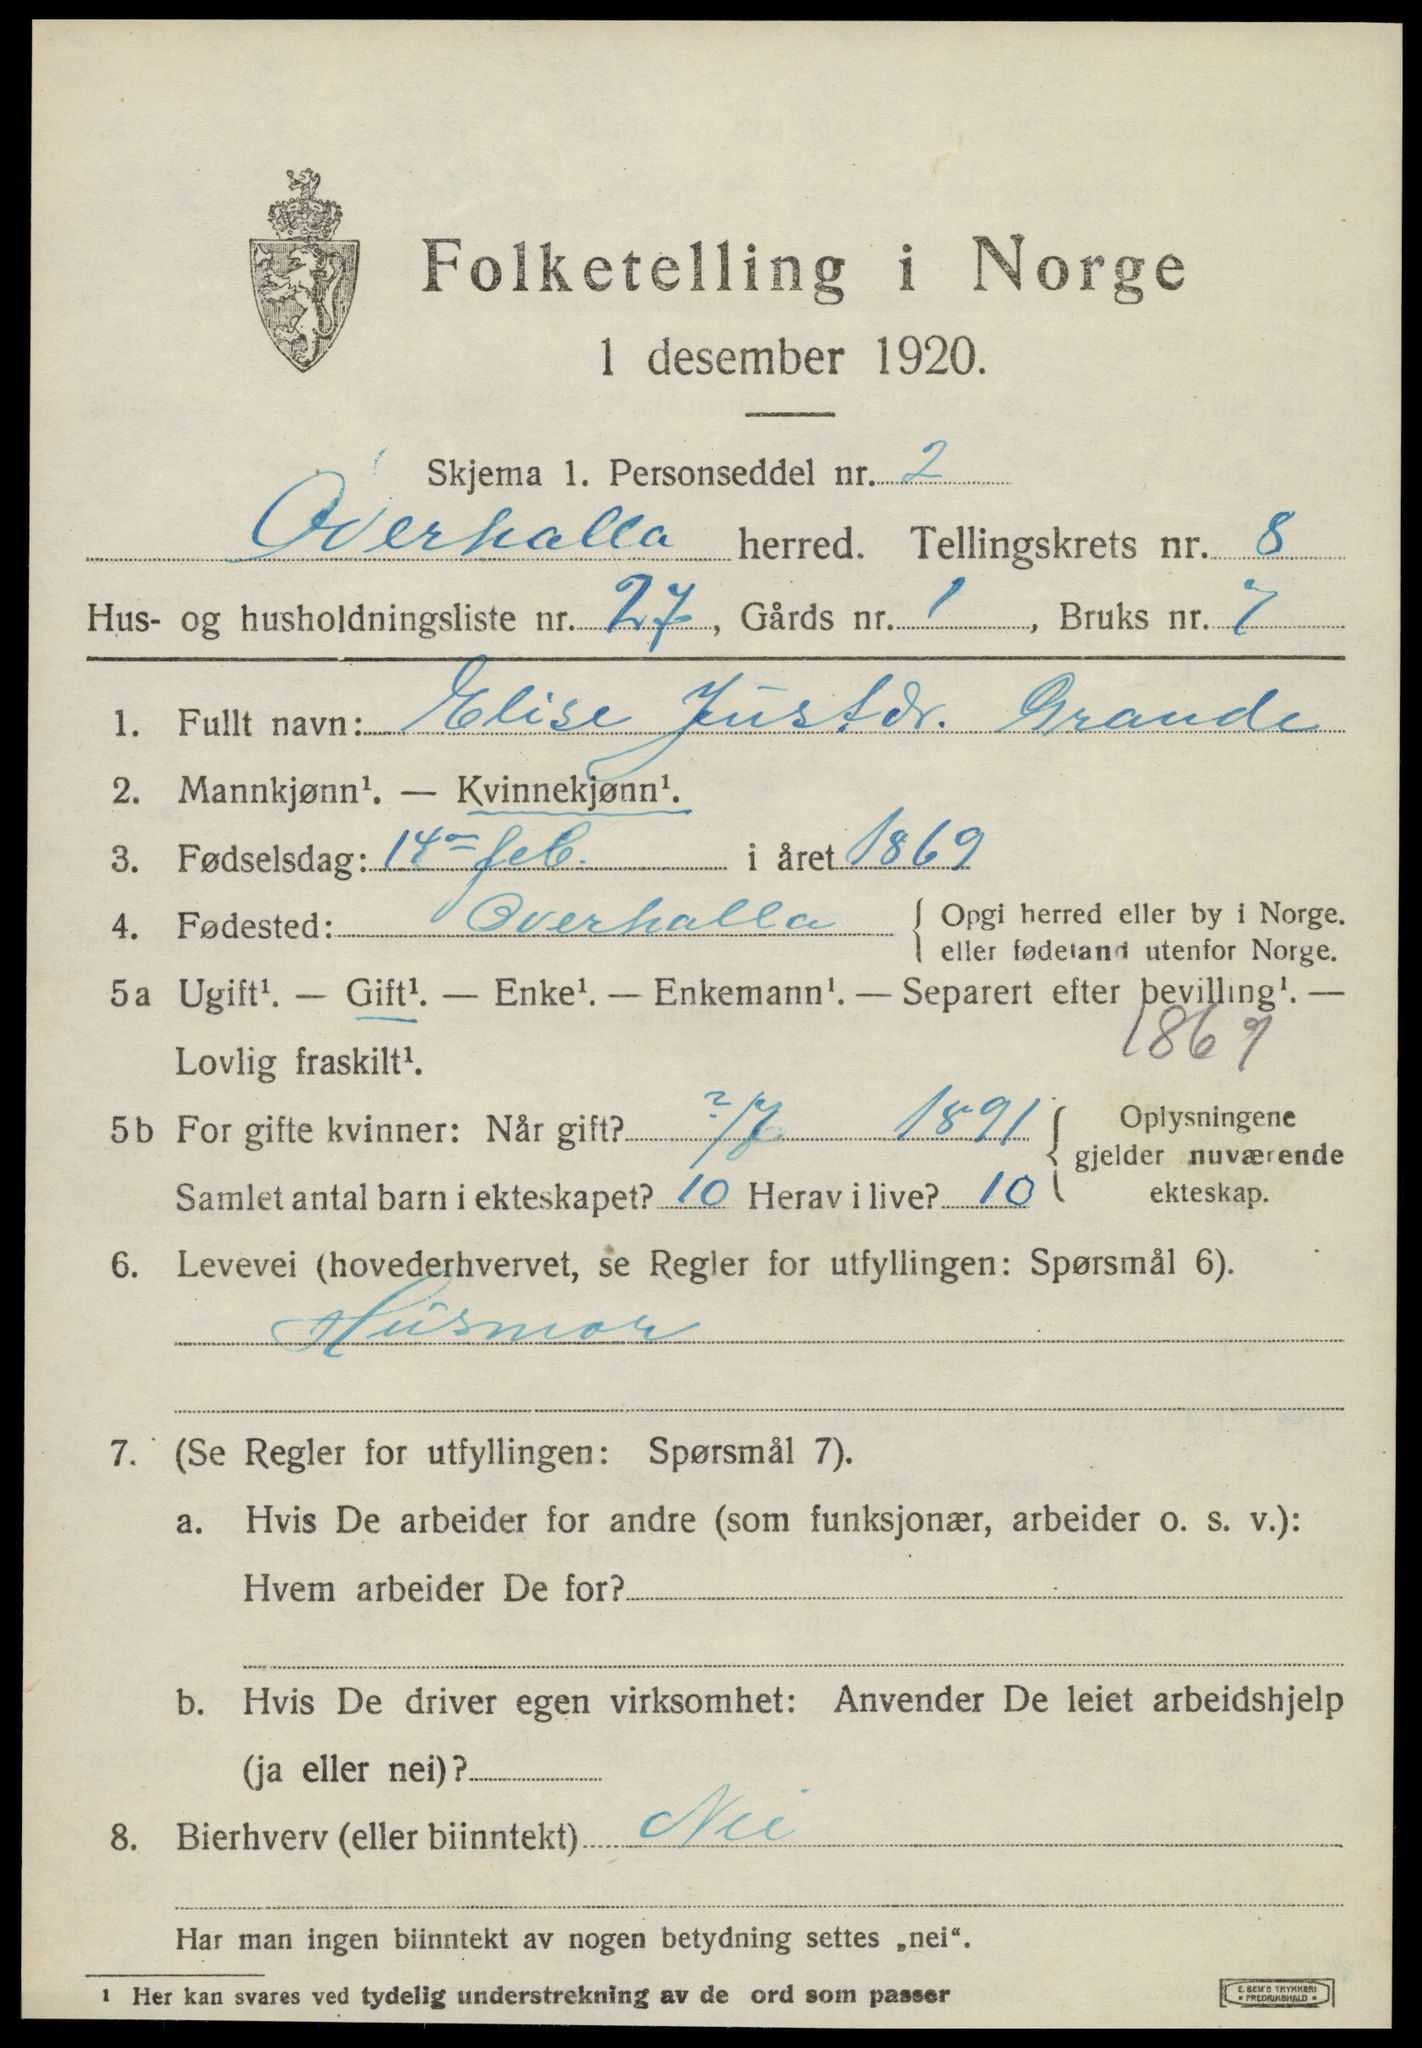 Folketelling i Norge
1 desember 1920.
Skjema 1. Personseddel nr. 2
Overhalla herred. Tellingskrets nr. 8
Hus- og husholdningsliste nr. 27, Gårds nr. 1, Bruks nr. 7
1. Fullt navn: Elise Justdr. Grande
2. Mannkjønn¹. — Kvinnekjønn¹.
3. Fødselsdag: 14de feb. i året 1869
4. Fødested: Overhalla { Opgi herred eller by i Norge.
eller fødeland utenfor Norge.
5a Ugift¹. — Gift¹. — Enke¹. — Enkemann¹. — Separert efter bevilling¹. —
Lovlig fraskilt¹. 1869
5b For gifte kvinner: Når gift? 2/7 1891 { Oplysningene
gjelder nuværende
Samlet antal barn i ekteskapet? 10 Herav i live? 10 ekteskap.
6. Levevei (hovederhvervet, se Regler for utfyllingen: Spørsmål 6).
Husmor
7. (Se Regler for utfyllingen: Spørsmål 7).
a. Hvis De arbeider for andre (som funksjonær, arbeider o. s. v.):
Hvem arbeider De for?
b. Hvis De driver egen virksomhet: Anvender De leiet arbeidshjelp
(ja eller nei)?
8. Bierhverv (eller biinntekt) Nei
Har man ingen biinntekt av nogen betydning settes „nei“.
1 Her kan svares ved tydelig understrekning av de ord som passer
E. SEM'S TRYKKERI
* FREDRIKSHALD *